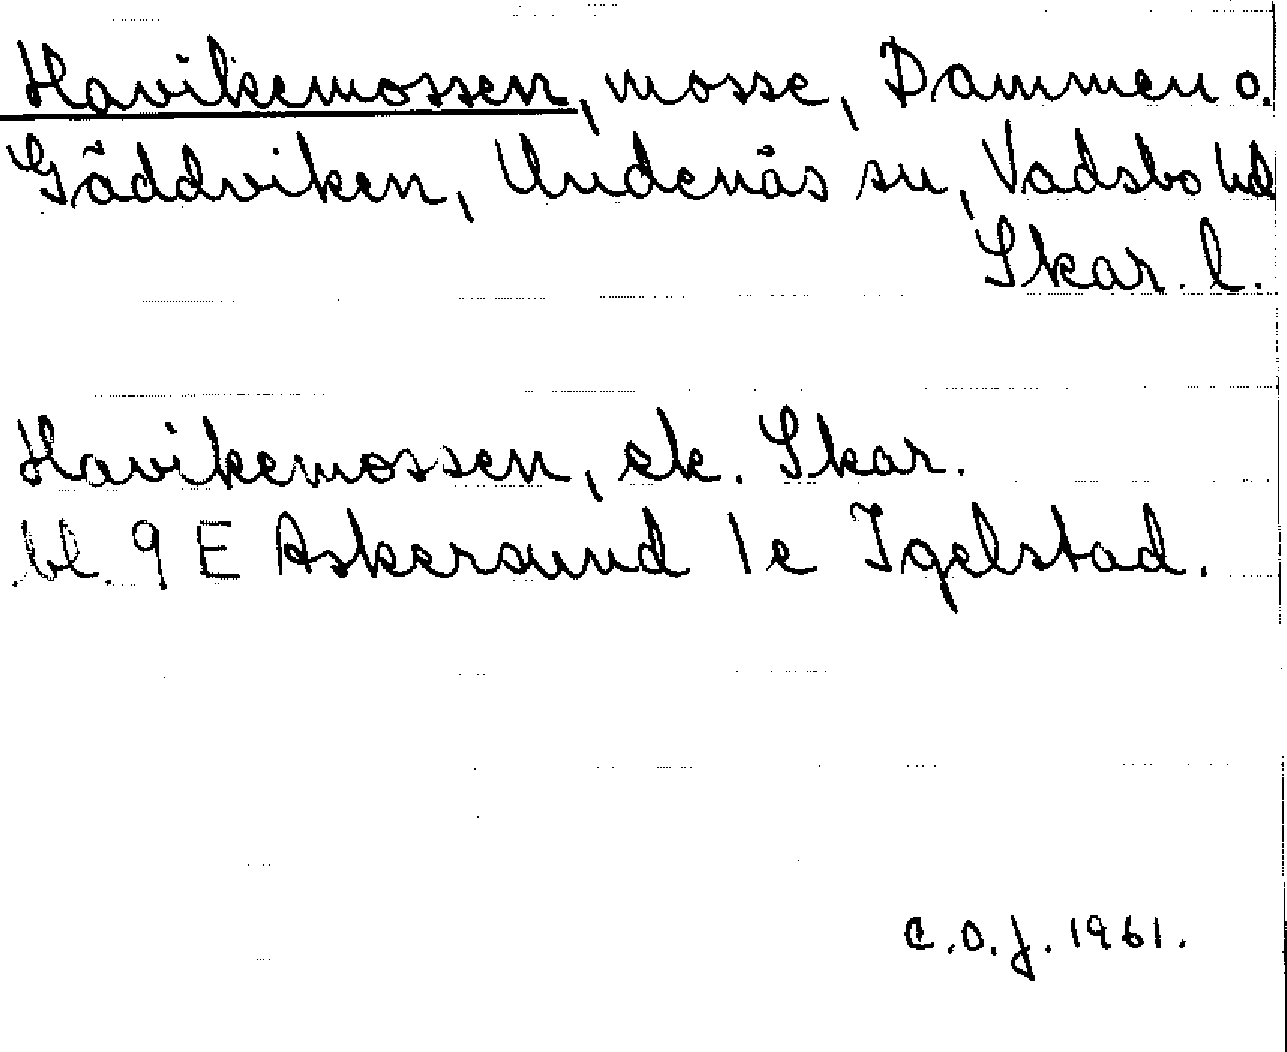 Havikemossen, mosse, Dammen o.
Gäddviken, Undenäs sn, Vadsbo hd
Skar. l.
Havikemossen, ek. Skar.
bl. 9 E Askersund 1e Igelstad.
C.O.J. 1961.